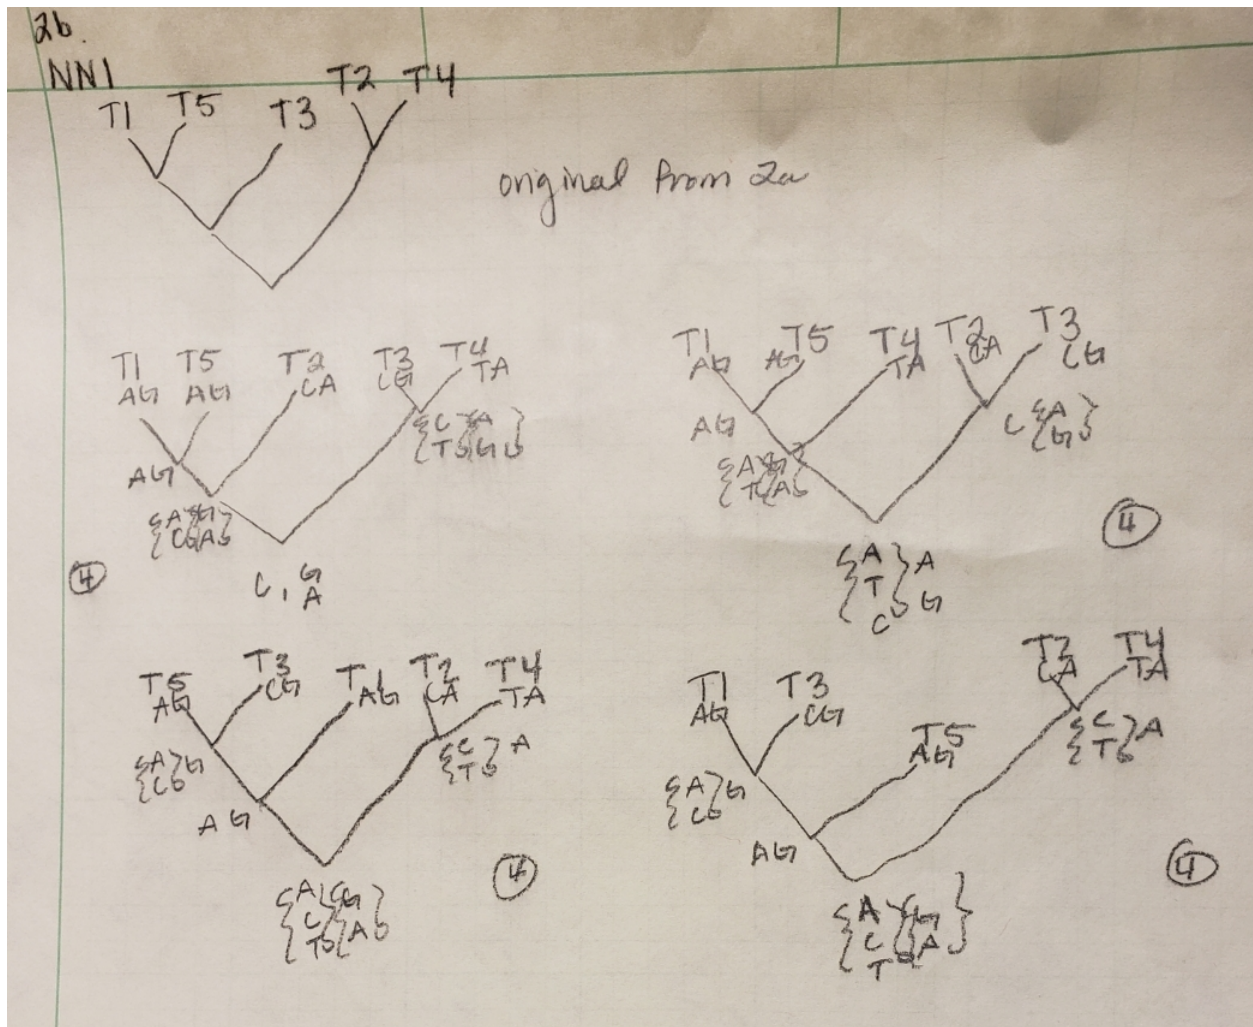 2b.
NNI
T1 T5 T3 T2 T4
original from 2a
T1 T5 T2 T3 T4
AG AG CA CG TA
AG
{A C} {G A}
{C T} {A G}
C, G A
4
T1 T5 T4 T2 T3
AG AG TA CA CG
AG
{A T} {G A}
C {A G}
{A T C} A G
4
T5 T3 T1 T2 T4
AG CG AG CA TA
{A C} G
{C T} A
AG
{A C T} {G A}
4
T1 T3 T5 T2 T4
AG CG AG CA TA
{A C} G
{C T} A
AG
{A C T} {G A}
4